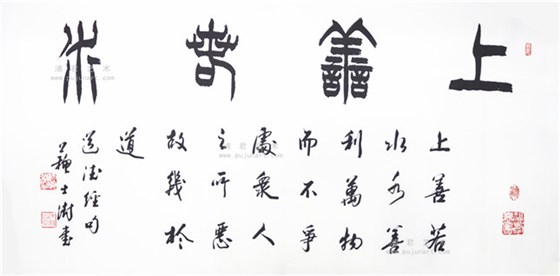 上善若水
上善若
水水善
利萬物
而不爭
處衆人
之所惡
故幾於
道
道德經句
蘇士澍書
www.pujunart.com